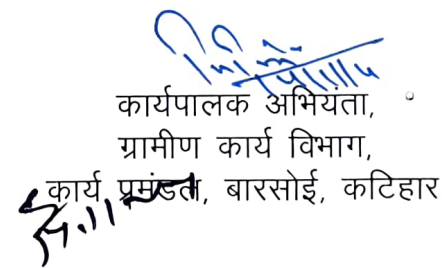 कार्यपालक अभियता,
ग्रामीण कार्य विभाग,
कार्य प्रमंडल, बारसोई, कटिहार